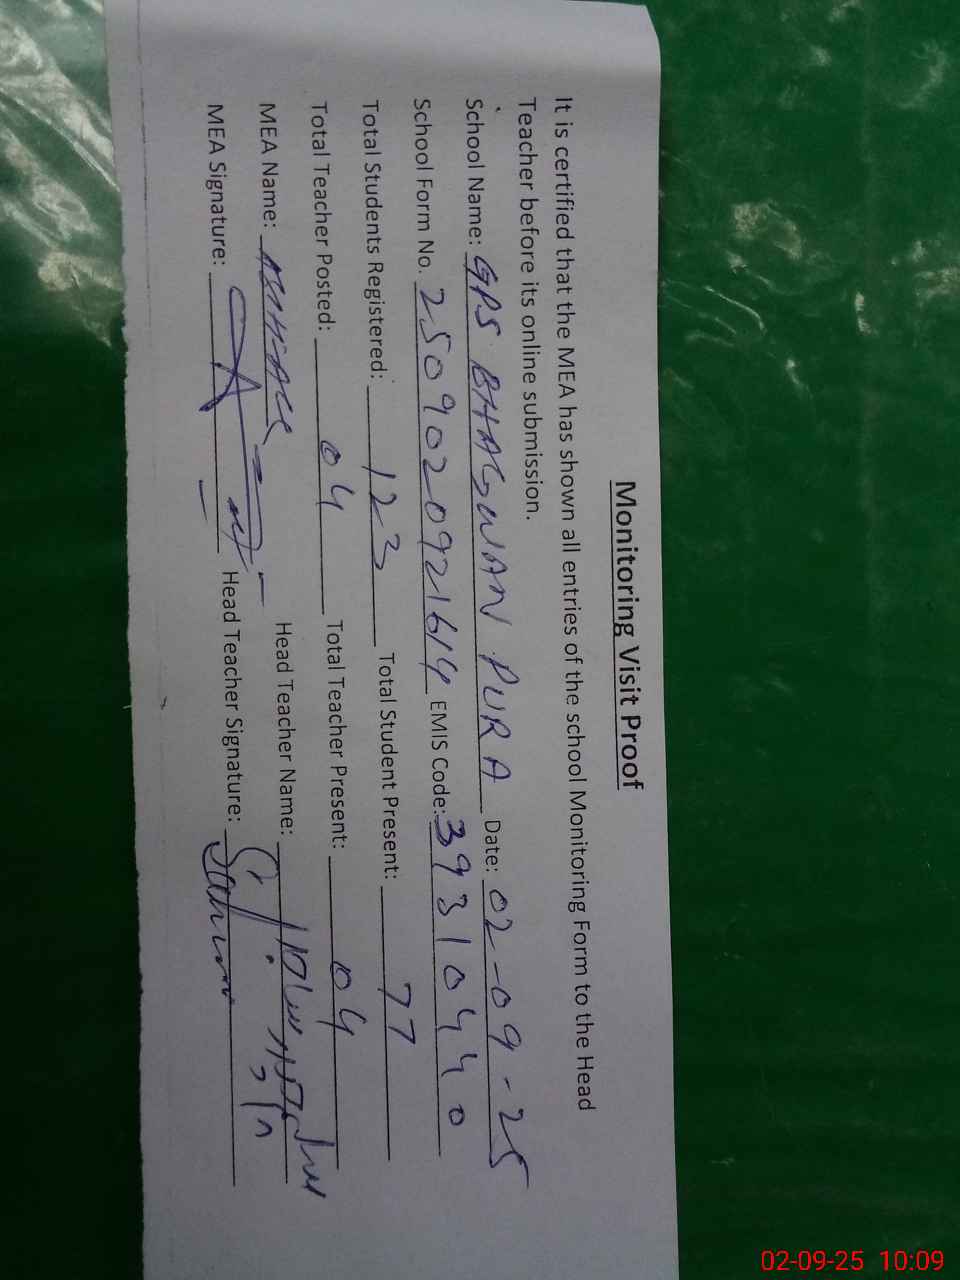 Monitoring Visit Proof
It is certified that the MEA has shown all entries of the school Monitoring Form to the Head
Teacher before its online submission.
School Name: GPS BHAGWAN PURA Date: 02-09-25
School Form No. 2509020921614 EMIS Code: 39310440
Total Students Registered: 123 Total Student Present: 77
Total Teacher Posted: 04 Total Teacher Present: 04
MEA Name: Head Teacher Name:
MEA Signature: Head Teacher Signature:
02-09-25 10:09